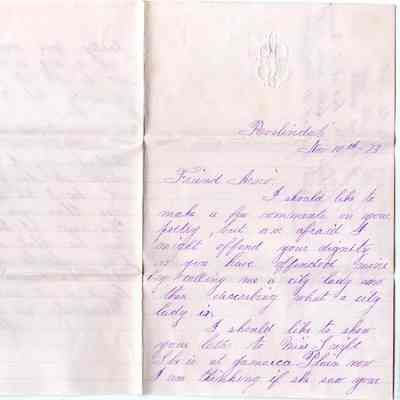 Roslindale
Nov 10th - 73
Friend
I should like to
make a few comments on your
poetry but am afraid I
might offend your dignity
as you have offended mine
by calling me a city lady now
then describing what a city
lady is.
I should like to show
your letter to Miss
She is at Jamaica Plain now
I am thinking if she saw your